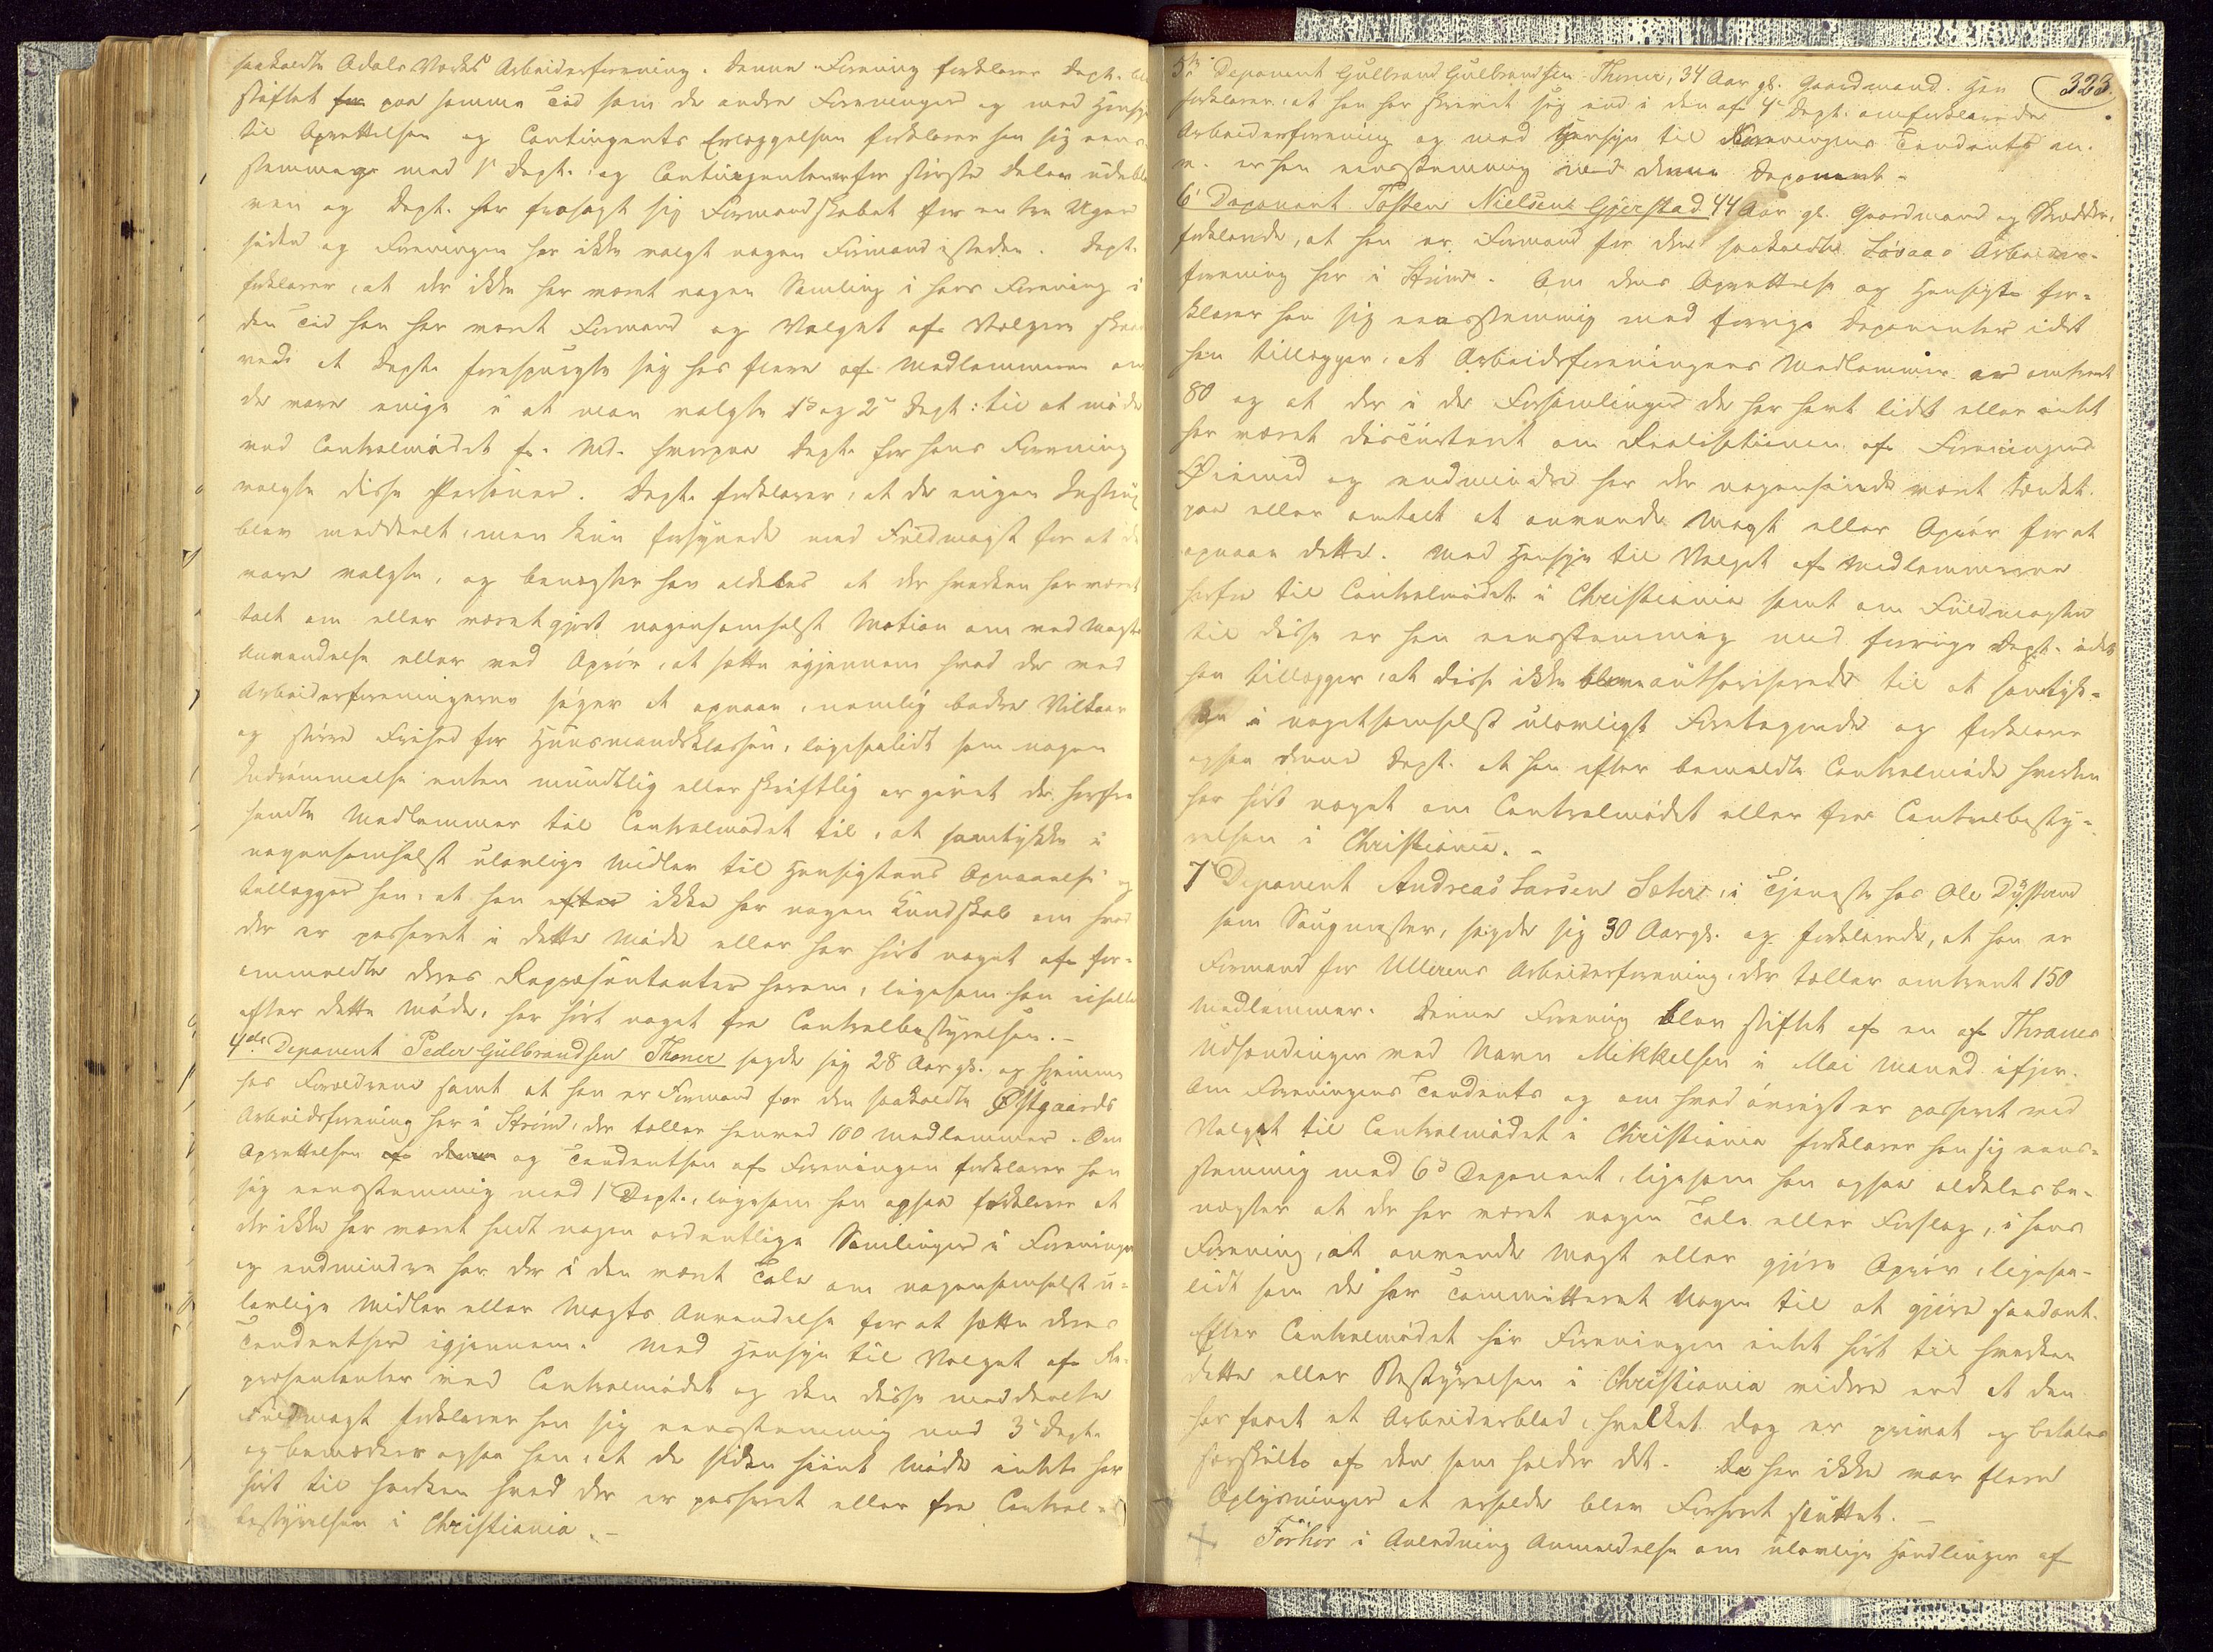 saakaldte Adals Vorks Arbeiderforening. Denne Forening forklarer Dept. bl
stiftet for paa samme Tid som de andre Foreninger og med Hensyn
til Oprettelsen og Contingents Erlæggelsen forklarer han sig eens-
stemmigr med 1ste Dept. og Contingenten for største Delen udeble-
ven og Dept. har frasagt sig Formandskabet for en tre Uger
siden og Foreningen har ikke valgt nogen Formand isteden. Dept.
forklarer, at der ikke har været nogen Samling i hans Forening i
den Tid han har været Formand og Valget af Vælgere skede
ved at Dept. forespurgte sig hos flere af Medlemmerne om
de vare enige i at man valgte 1ste og 2den Dept: til at møde
ved Centralmødet f. M. hvorpaa Dept. for hans Forening
valgte disse Personer. Dept. forklarer, at der ingen Instrux
blev meddeelt, men kun forsynede med Fuldmagt for at de
vare valgte, og benægter han aldeles at der hverken har været
talt om eller været gjort nogensomhelst Motion om ved Magts
Anvendelse eller ved Oprør, at sætte igjennem hvad der ved
Arbeiderforeningerne søges at opnaae, nemlig bedre Vilkaar
og større Frihed for Huusmandsklassen, ligesaalidt som nogen
Indrømmelse enten mundtlig eller skriftlig er givet de herfra
sendte Medlemmer til Centralmødet til, at samtykke i
nogensomhelst ulovlige Midler til Hensigtens Opnaaelse og
tillægger han, at han efter ikke har nogen Kundskab om hvad
der er passeret i dette Møde eller har hørt noget af for-
anmeldte deres Repræsentanter herom, ligesom han ei heller
efter dette Møde, har hørt noget fra Centralbestyrelsen.-
4de Deponent Peder Gulbrandsen Thoner sagde sig 28 Aar gl. og hjemme
hos Forældrene samt at han er Formand for den saakaldte Østgaards
Arbeidsforening her i Strøm, der tæller henved 100 Medlemmer. Om
Oprettelsen af denne og Tendentsen af Foreningen forklarer han
sig eensstemmig med 1ste Dept., ligesom han ogsaa forklarer at
der ikke har været holdt nogen ordentlige Samlinger i Foreningen
og endmindre har der i den været Tale om nogensomhelst u-
lovlige Midler eller Magts Anvendelse for at sætte deres
Tendentser igjennem. Med Hensyn til Valget af Re-
præsentanter ved Centralmødet og den disse meddeelte
Fuldmagt forklarer han sig eensstemmig med 3die Dept.
og bemærker ogsaa han, at de siden hiint Møde intet har
hørt til hverken hvad der er passeret eller fra Central-
bestyrelsen i Christiania.-
323.
5te Deponent Gulbrand Gulbrandsen Thoner, 34 Aar gl. Gaardmand. Han
forklarer, at han har skrevet sig ind i den af 4de Dept. omforklarede
Arbeiderforening og med Hensyn til Foreningens Tendents m.
v. er han eensstemmig med denne Deponent.-
6te Deponent Tosten Nielsen Gjerstad 44 Aar gl. Gaardmand og Skrædder,
forklarede, at han er Formand for den saakaldte Løvaas Arbeider-
forening her i Strøm. Om dens Oprettelse og Hensigt for-
klarer han sig eensstemmig med forrige Deponenter idet
han tillægger, at Arbeidsforeningens Medlemmer er omtrent
80 og at der i de Forsamlinger de har havt lidt eller intet
har været discuteret om Realisationen af Foreningens
Øiemed og endmindre har der nogensinde været tænkt
paa eller omtalt at anvende Magt eller Oprør for at
opnaae dette. Med Hensyn til Valget af Medlemmerne
herfra til Centralmødet i Christiania samt om Fuldmagten
til disse er han eensstemmig med forrige Dept. idet
han tillægger, at disse ikke bleve authoriserede til at samtyk-
ke i nogetsomhelst ulovligt Foretagende og forklarer
ogsaa denne Dept. at han efter bemeldte Centralmøde hverken
har hørt noget om Centralmødet eller fra Centralbesty-
relsen i Christiania.-
7de Deponent Andreas Larsen Sæter, i Tjeneste hos Ole Dystrand
som Saugmester, sagde sig 30 Aar gl. og forklarede, at han er
Formand for Ullerens Arbeiderforening, der tæller omtrent 150
Medlemmer. Denne Forening blev stiftet af en af Thranes
Udsendinger ved Navn Mikkelsen i Mai Maaned ifjor.
Om Foreningens Tendents og om hvad øvrigt er passeret ved
Valget til Centralmødet i Christiania forklarer han sig eens-
stemmig med 6te Deponent, ligesom han ogsaa aldeles be-
nægter at der har været nogen Tale eller Forslag, i hans
Forening, at anvende Magt eller gjøre Oprør, ligesaa-
lidt som de har committeret Nogen til at gjøre saadant.
Efter Centralmødet har Foreningen intet hørt til hverken
dette eller Bestyrelsen i Christiania videre end at den
har faaet et Arbeiderblad, hvilket dog er privat og betales
særskilt af den som holder det. Da her ikke var flere
Oplysninger at erholde blev Forhøret sluttet.-
Forhør i Anledning Anmeldelse om ulovlige Handlinger af